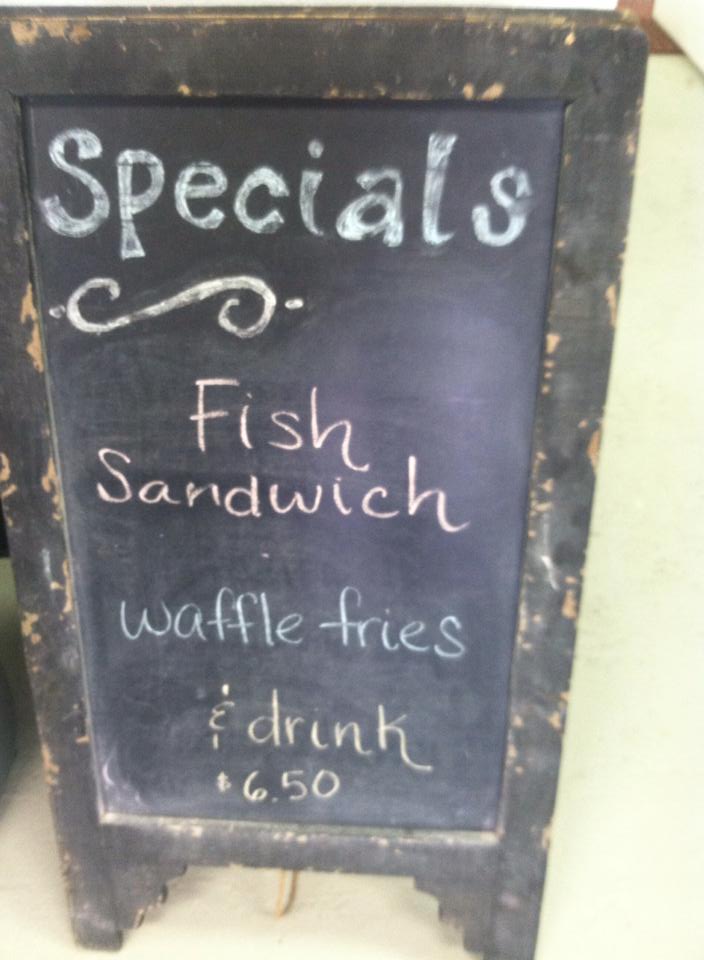 Specials
Fish
Sandwich
waffle fries
& drink
$6.50